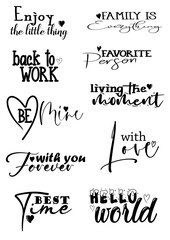 Enjoy
the little thing
FAMILY IS
Everything
back to
WORK
FAVORITE
Person
living the
moment
BE Mine
with
Love
with you
Forever
BEST
Time
HELLO
world